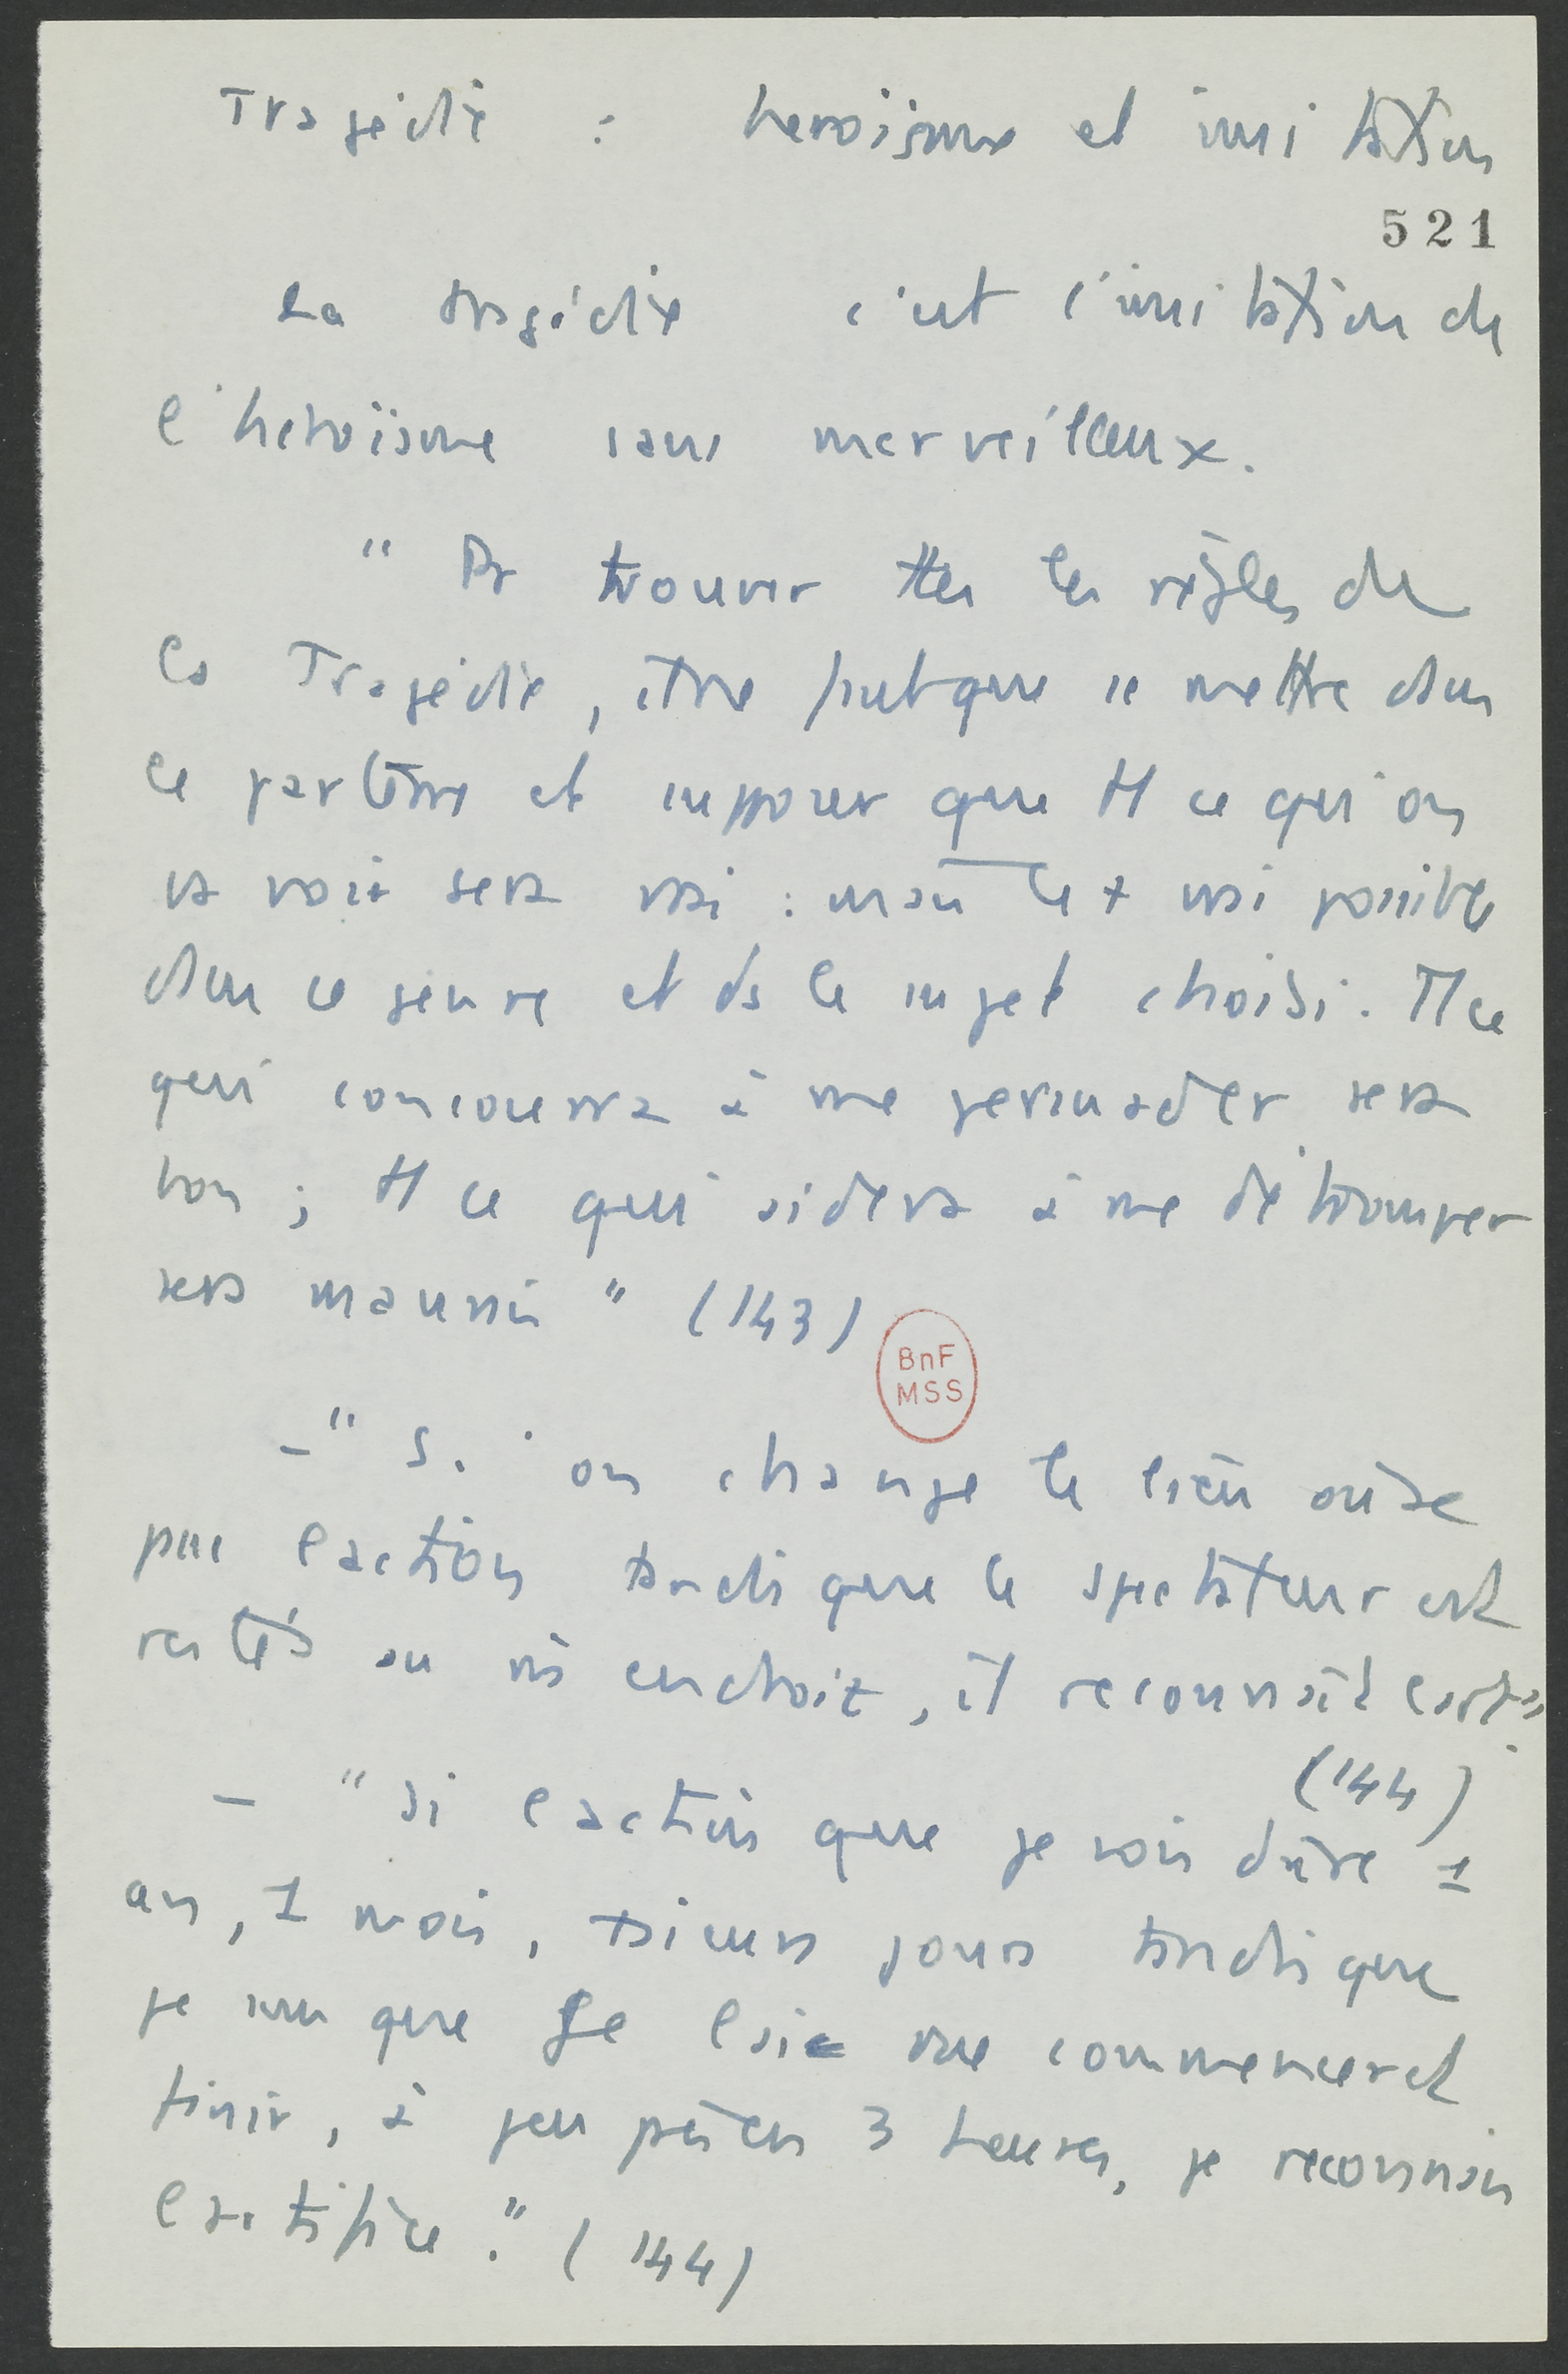 Tragédie : heroisme et imitation
521
La tragédie c'est l'imitation de
l'heroïsme sans merveilleux.
" Pr trouver ttes les règles de
la Tragédie, il ne faut que se mettre dans
le parterre et supposer que tt ce qu'on
va voir sera vrai : mais le + vrai possible
dans ce genre et ds le sujet choisi. Tt ce
qui concourra à me persuader sera
bon ; tt ce qui aidera à me détromper
sera mauvais " (143)
BnF
MSS
- " Si on change le lieu où se
passe l'action tandis que le spectateur est
resté au m endroit, il reconnaît l'art "
(144)
- " si l'action que je vois dure 1
an, 1 mois, plusieurs jours tandis que
je sens que je l'ai vue commencer et
finir, à peu près en 3 heures, je reconnais
l'artifice." (144)